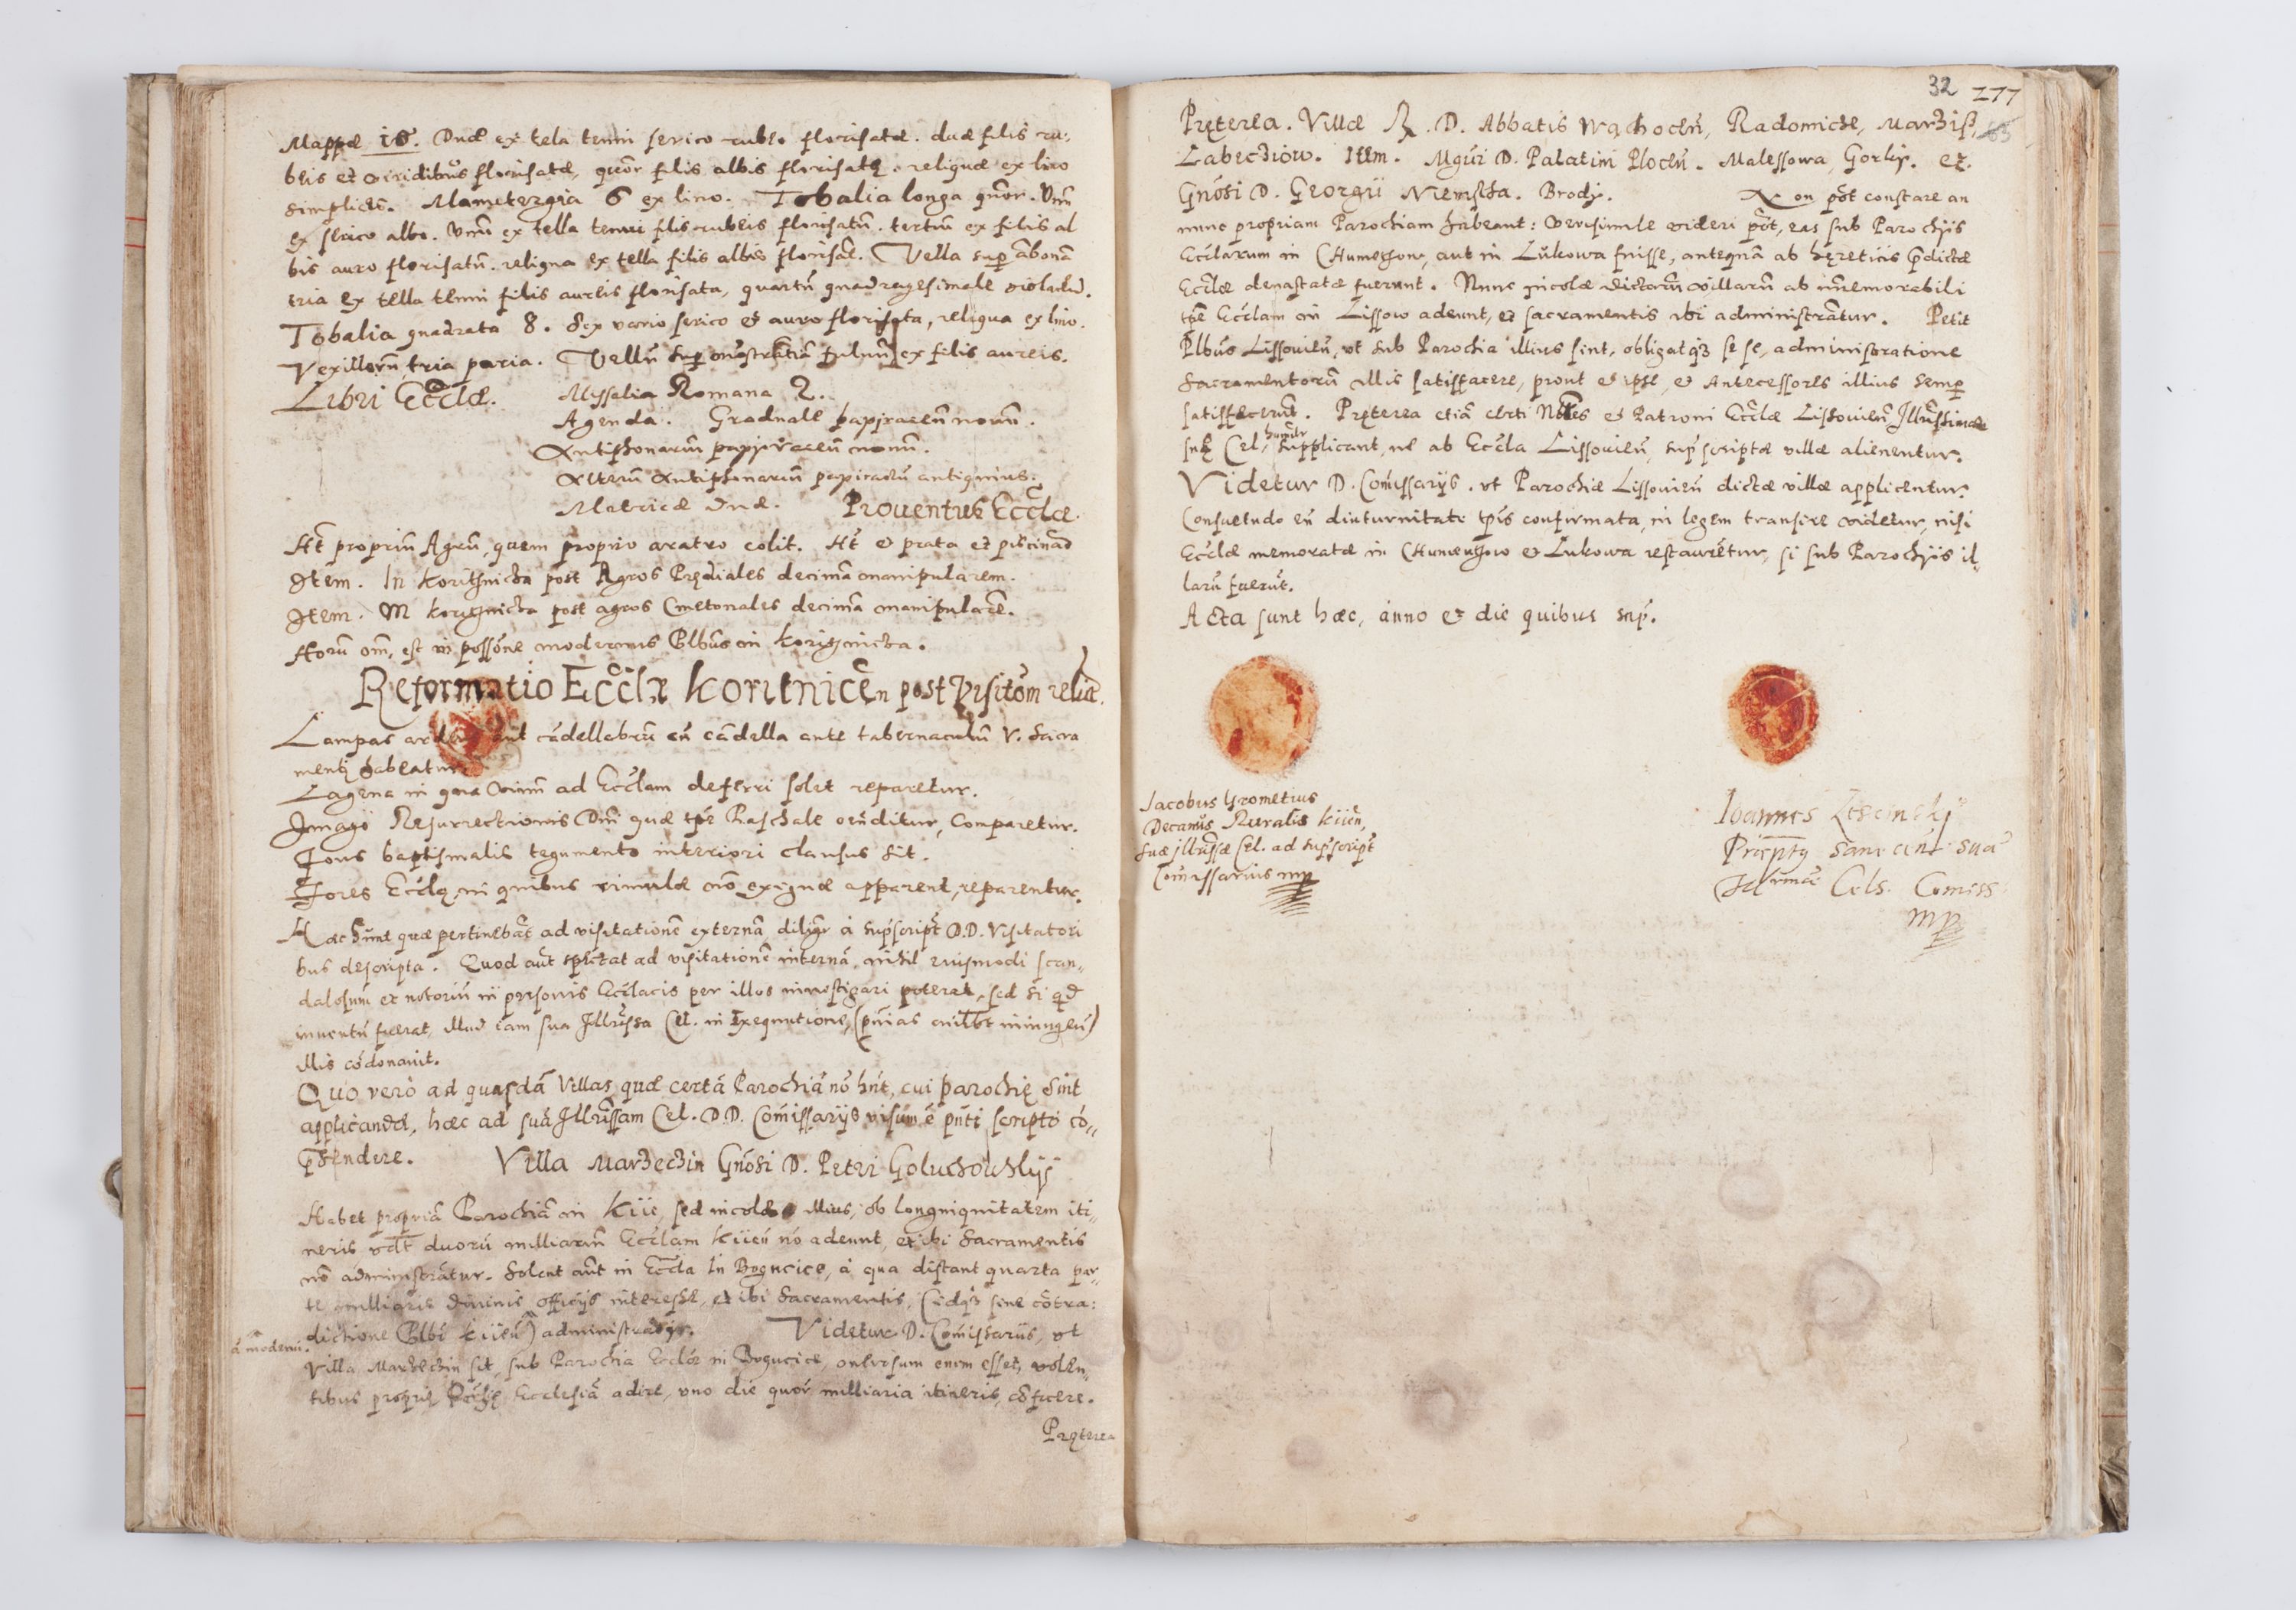 Mappæ 18. Duæ ex tela tenui serico rubeo florisatæ. duæ filis ru-
beis et viridibus florisatæ, quõr filis albis florisatę. reliquæ ex lino
simplices. Manitergia 6 ex lino. Tobalia longa quõr. Vnũ
ex serico albo. Vnũ ex tella tenui filis rubeis florisatũ. tertiũ ex filis al
bis auro florisatũ. reliqua ex tella filis albis florisat. Vella sup abonã
tria ex tella tenui filis aureis florisata, quartũ quadragesimale
Tobalia quadrata 8. sex vario serico et auro florisata, reliqua ex lino.
Vexillorũ tria paria. Vellũ sup mõstrãtiã ex filis aureis.
Libri Eccłæ. Missalia Romana 2.
Agenda. Graduale papiraceũ novũ.
Antiphonariũ papiraceũ novũ.
Alterũ Antiphonariũ papiraceũ antiquius.
Matricæ duæ. Proventus Eccłæ.
Ht propriũ Agrũ, quem proprio aratro colit. Ht et prata et piscinas
Item. In Koritnicza post Agros Prędiales decimã manipularem.
Item. In Koritnicza post agros Cmetonales decimã manipularẽ.
Horũ om̃ est in possõne modernus Plbũs in Koritnicza.
Reformatio Eccłæ Koritnicẽn post Visitõm relicta.
Lampas ardens aut cãdellabrũ cũ cãdella ante tabernaculũ V. Sacra
menti habeatur.
Lagena in qua vinũ ad Eccłam deferri solet reparetur.
Imago Resurrectionis Dñi quæ tp̃e Paschale ostẽditur, Comparetur.
Fons baptismalis tegumento interiori clausus sit.
Fores Eccłę, in quibus rimulæ nõ exiguæ apparent, reparentur.
Hæc sunt quæ pertinebãt ad visitationẽ externã, diligr à sup̃script D.D. Visitatori
bus descripta. Quod aũt spectat ad visitationẽ internã, nihil eiusmodi scan„
dalosum et notoriũ in personis Eccłacis per illos investigari poterat, sed si qd
inventũ fuerat, illud iam sua Illr̃issa Cel. in Exequutione,
illis cõdonavit.
Quo verò ad quasdã Villas, quæ certã Parochiã nõ hñt, cui parochię sint
applicandæ, hæc ad suã Illr̃issam Cel. D.D. Comissarijs visum ẽ pñti scripto cõ„
p̃hendere. Villa Marzechin Gnõsi D. Petri Goluchowskij
Habet propriã Parochiã in Kije, sed incolæ illius, ob longinquitatem iti„
neris vdłt duorũ milliariũ Eccłam Kijeñ nõ adeunt, et ibi Sacramentis
nõ administrãtur. Solent aũt in Eccła in Bogucice, à qua distant quarta par„
te milliaris divinis officijs interesse, et ibi Sacramentis, (idq̃ sine cõtra:
à moderni.
dictione Plbi Kijeñ) administrãtur. Videtur D. Comissariis, vt
Villa Marzechin sit sub Parochia Eccłæ in Bogucice, onerosum enim esset, volen„
tibus proprię Ecclesiã adire, vno die quõr milliaria itineris cõficere.
Pręterea
32 177
Pręterea. Villæ R. D. Abbatis Wąchoceñ, Radomicze,
Labedziow. Item. Mgũi D. Palatini Ploceñ. Malessowa, Gorky. et.
Gnõsi D. Georgii Niemsta. Brody. Non põt constare an
nunc propriam Parochiam habeant: verisimile videri põt, eas sub Parochijs
Eccłarum in Chumetzow, aut in Lukowa fuisse, antequã ab hęreticis p̃dictæ
Eccłæ devastatæ fuerunt. Nunc incolæ dictarũ villarũ ab im̃emorabili
tp̃e Eccłam in Lissow adeunt, et sacramentis ibi administrãtur. Petit
Plbũs Lissovieñ, vt sub Parochia illius sint, obligatq̃ se se, administratione
Sacramentorũ illis satisfacere, prout et ipse, et Antecessores illius semp
satisfecerũt. Pręterea etiã certi Nobiles et Patroni Eccłæ Lissovieñ Illr̃issimæ
suę Cel. humilr supplicant, ne ab Eccła Lissovieñ, sup̃ scriptæ villæ alienentur.
Videtur D. Comissarijs. vt Parochiæ Lissovieñ dictæ villæ applicentur.
Consuetudo eñ diuturnitate tp̃is confirmata, in legem transire videtur, nisi
Eccłæ memoratæ in Chumentzow et Lukowa restaurẽtur, si sub Parochijs il„
larũ fuerũt.
Acta sunt hæc, anno et die quibus sup̃.
Jacobus Grometius
Decanus Ruralis Kijeñ,
Suæ Illr̃issæ Cel. ad sup̃script
Comissarius mp
Ioannes
Cels. Comiss
mp